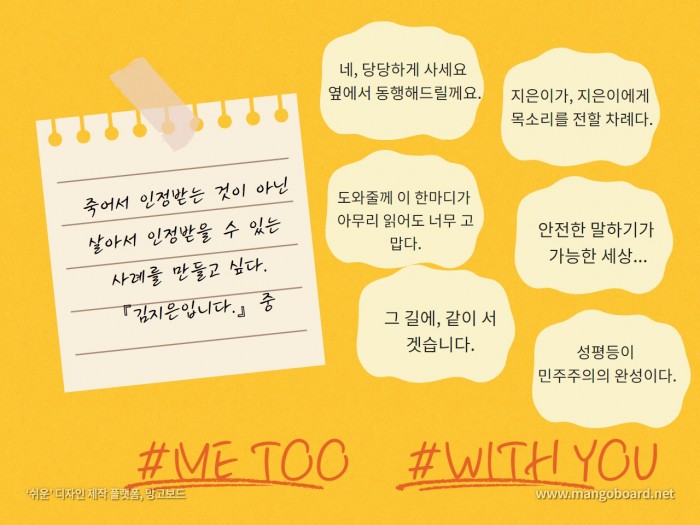 죽어서 인정받는 것이 아닌
살아서 인정받을 수 있는
사례를 만들고 싶다.
『김지은입니다.』 중
네, 당당하게 사세요
옆에서 동행해드릴께요.
지은이가, 지은이에게
목소리를 전할 차례다.
도와줄께 이 한마디가
아무리 읽어도 너무 고
맙다.
안전한 말하기가
가능한 세상...
그 길에, 같이 서
겟습니다.
성평등이
민주주의의 완성이다.
#ME TOO
#WITH YOU
'쉬운' 디자인 제작 플랫폼, 망고보드
www.mangoboard.net